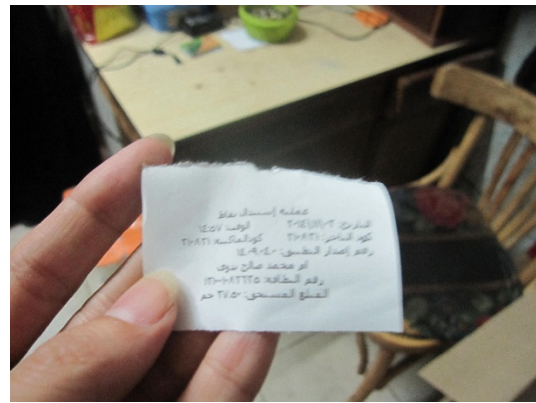 عملية إستبدال نقاط
التاريخ: ٢٠١٤/١١/٠٢ الوقت: ١٤:٥٧
كود التاجر: ٢١٠٨٢١ كودالماكينة: ٢١٠٨٢١
رقم إصدار التطبيق: ١٤٠٩٠٤٠
ام محمد صالح بدوى
رقم البطاقة:
المبلغ المستحق: ٢٧.٥٠ جم